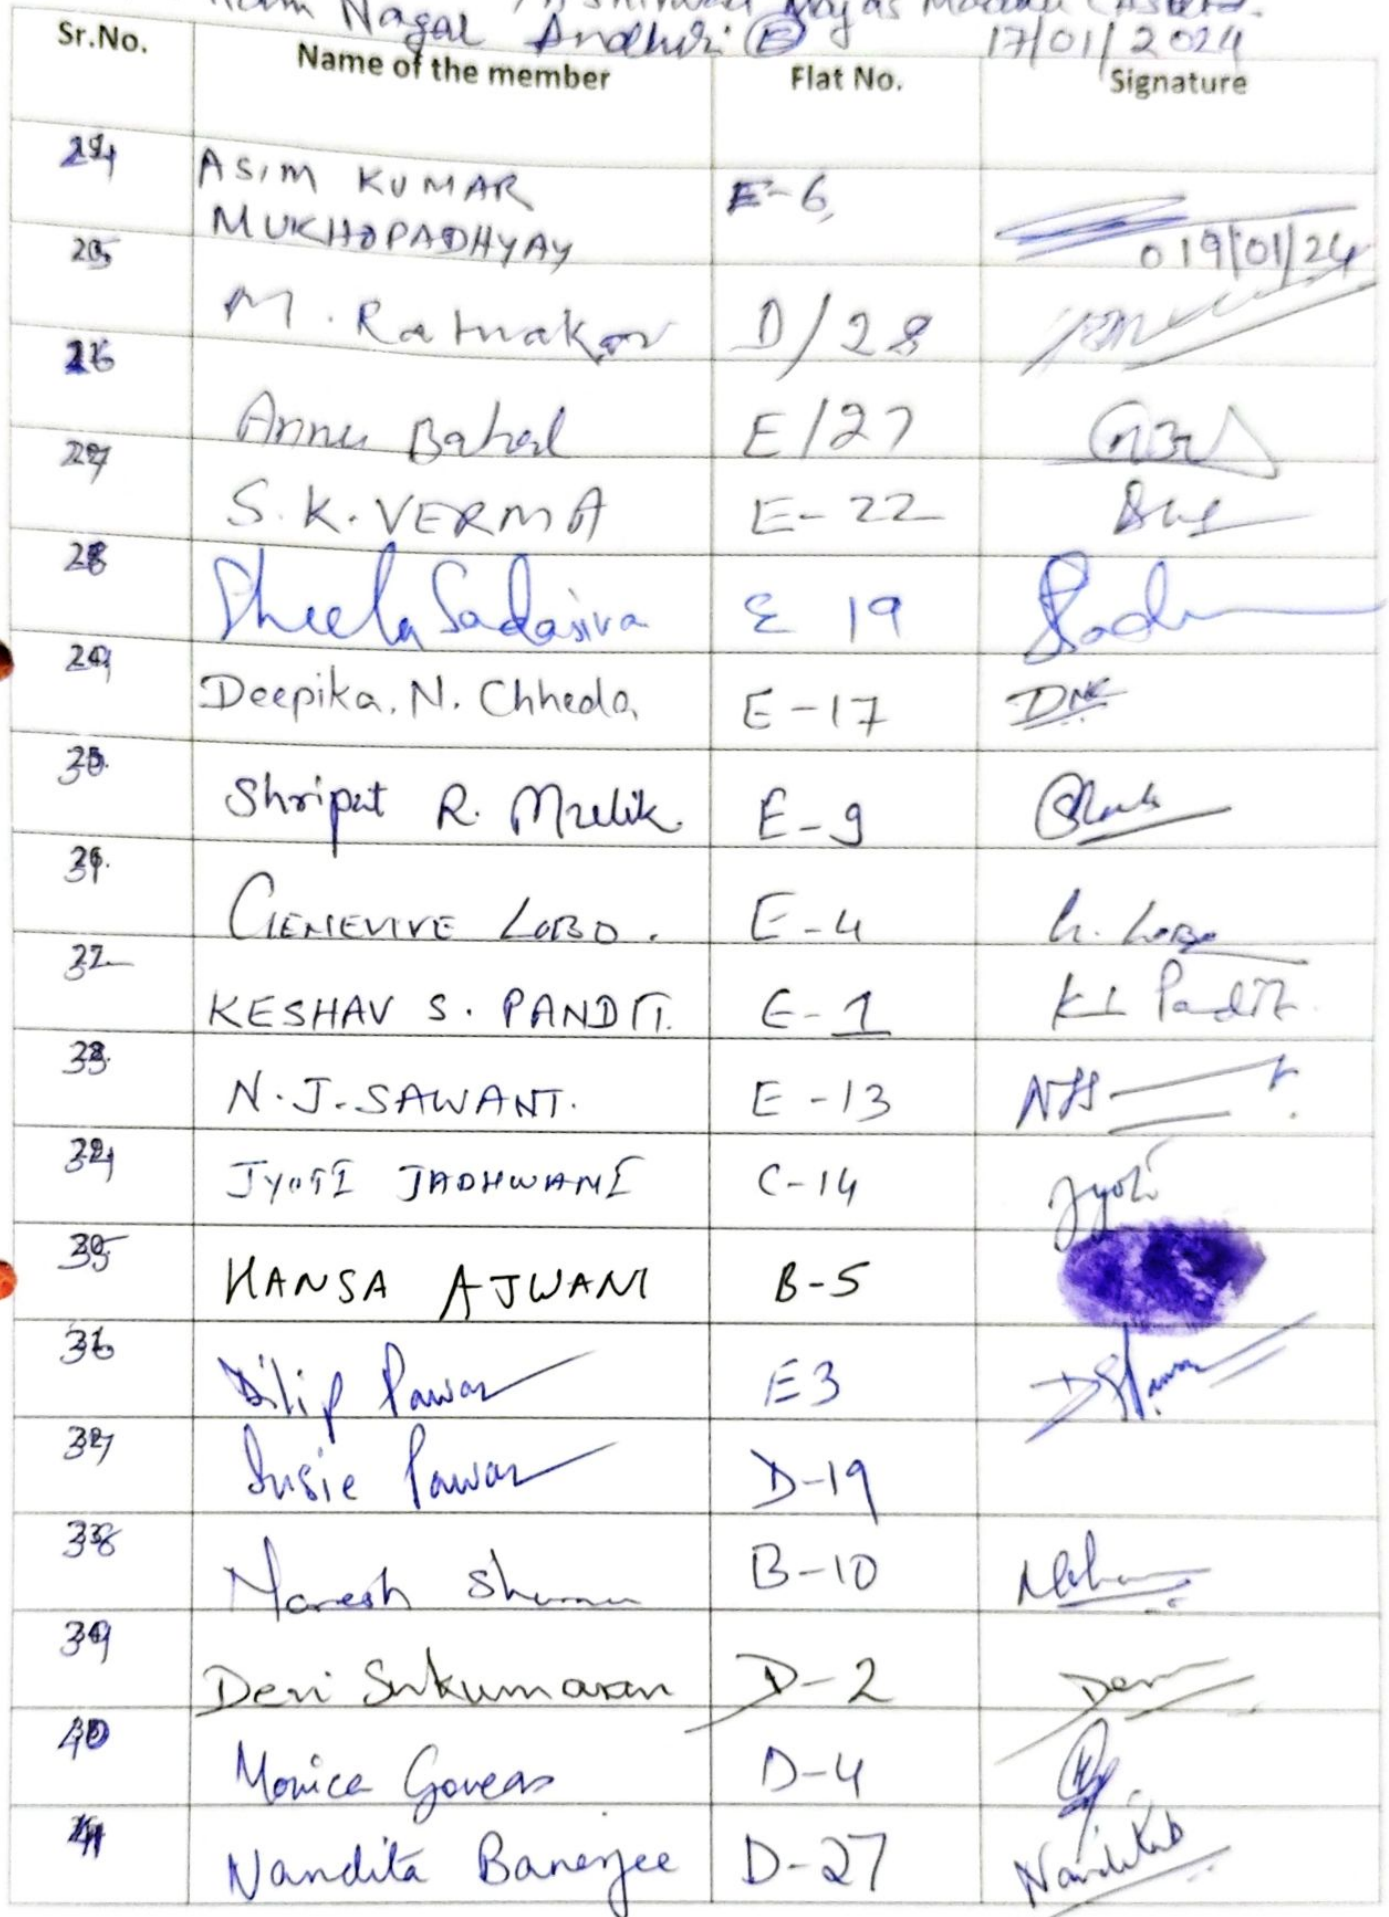 Nagar Andheri (E) 17/01/2024
Sr.No. Name of the member Flat No. Signature
24 ASIM KUMAR MUKHOPADHYAY E-6, 19/01/24
25 M. Ratnakar D/28
26 Annu Bahal E/27
27 S.K. VERMA E-22
28 Sheela Sadasiva E 19
29 Deepika. N. Chheda E-17 DNC
30 Shripat R. Mulik. E-9
31 GENEVIVE LOBO. E-4 G. Lobo
32 KESHAV S. PANDIT. E-1 KS Pandit
33 N.J. SAWANT. E-13
34 JYOTI JADHWANI C-14 Jyoti
35 HANSA AJWANI B-5
36 Dilip Pawar E3
37 Susie Pawar D-19
38 Naresh B-10
39 Devi Sukumaran D-2 Devi
40 Monica Goveas D-4
41 Nandita Banerjee D-27